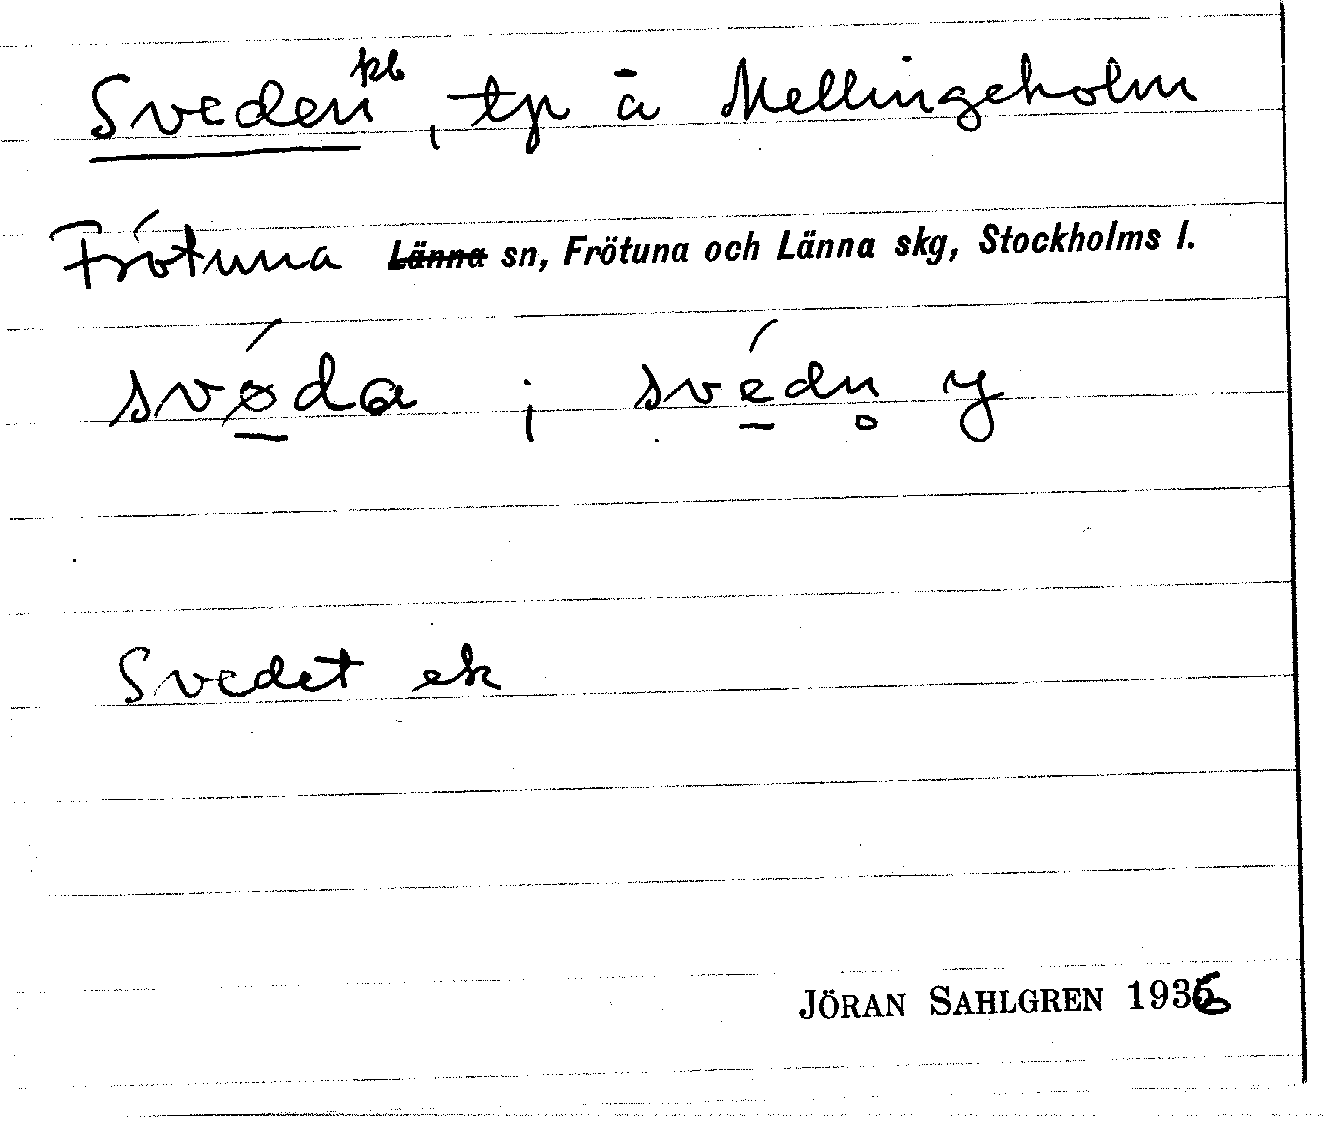 Sveden pl, tp å Mellingeholm
Frötuna Länna sn, Frötuna och Länna skg, Stockholms l.
svǿ̱da ; své̱dn̥ y
Svedet ek
JÖRAN SAHLGREN 1936